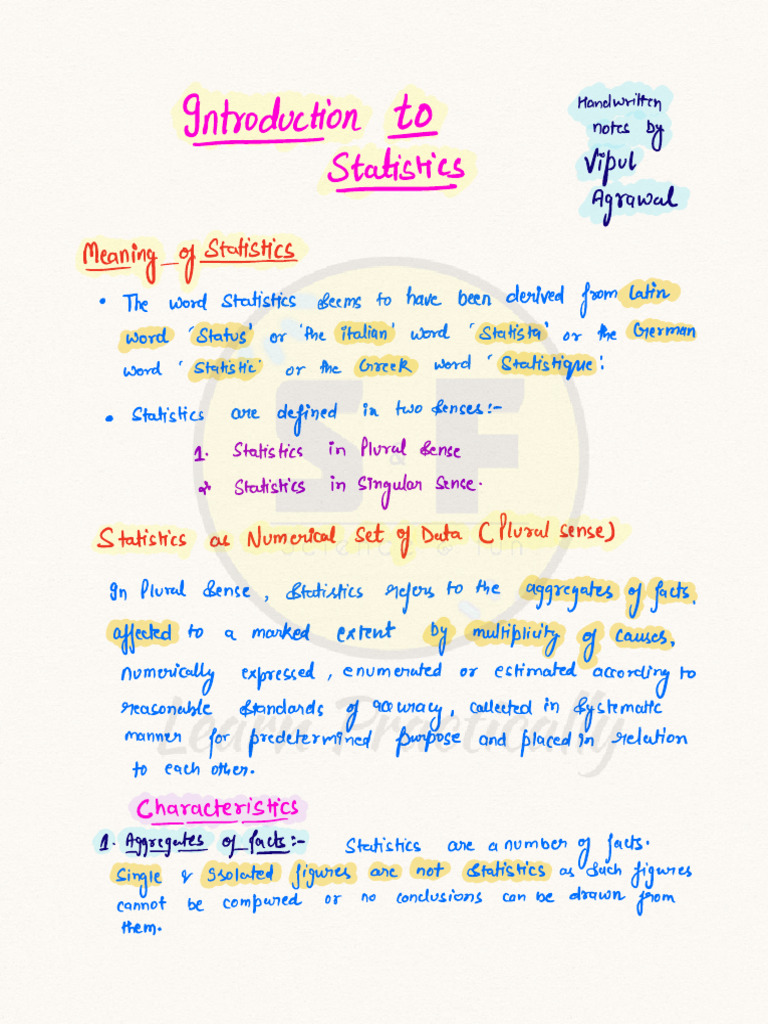 Introduction to
Statistics
Handwritten
notes by
Vipul
Agrawal
Meaning of Statistics
• The word Statistics seems to have been derived from Latin
word 'Status' or 'the italian' word 'Statista' or the German
word 'Statistic' or the Greek word 'Statistique'.
• Statistics are defined in two senses:-
1. Statistics in Plural Sense
2. Statistics in Singular Sense.
Statistics as Numerical Set of Data (Plural sense)
In Plural Sense, Statistics refers to the aggregates of facts,
affected to a marked extent by multiplicity of causes,
numerically expressed, enumerated or estimated according to
reasonable standards of accuracy, collected in Systematic
manner for predetermined purpose and placed in relation
to each other.
Characteristics
1. Aggregates of facts:- Statistics are a number of facts.
Single & Isolated figures are not Statistics as Such figures
cannot be compared or no conclusions can be drawn from
them.
S & F
Science @ fun
Learn Practically